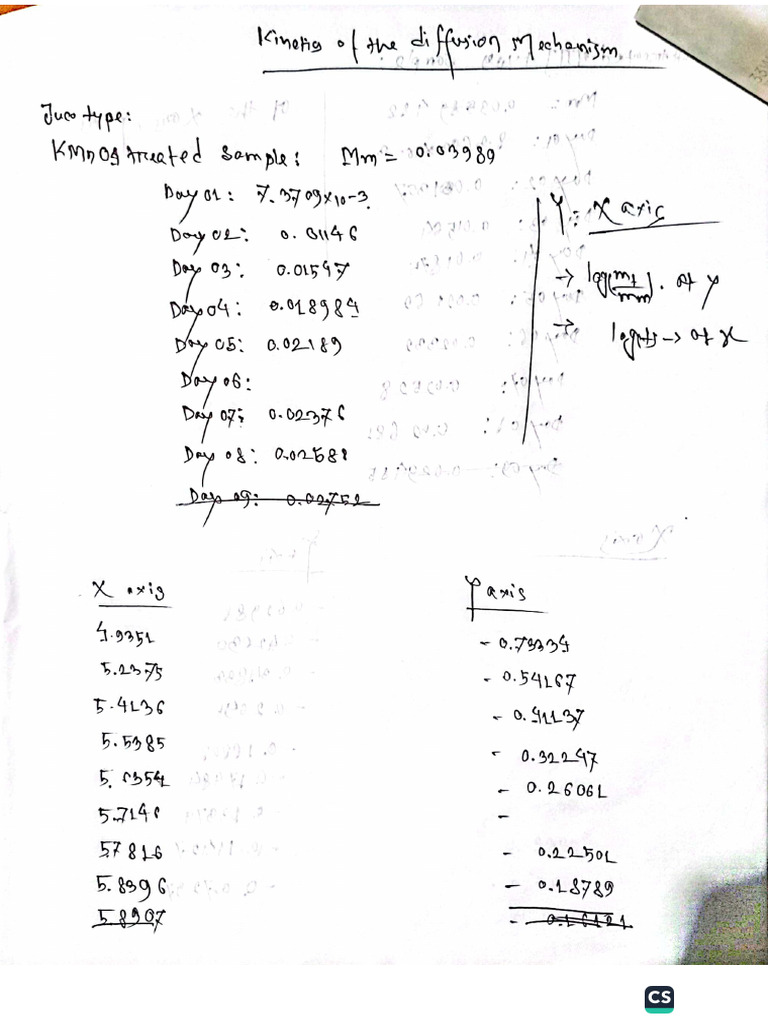 Kinetis of the diffusion Mechanism
Juco type:
KMnO4 treated sample: Mm = 0.03989
Day 01: 7.3709×10-3
Day 02: 0.01146
Day 03: 0.01547
Day 04: 0.018984
Day 05: 0.02189
Day 06:
Day 07: 0.02376
Day 08: 0.02588
Day 09: 0.02752
Y: X axis
→ log(mt/mm). at y
→ log(t) → at x
X axis
4.9351
5.2375
5.4136
5.5385
5.6354
5.7146
5.7816
5.8396
5.8907
Y axis
- 0.73334
- 0.54167
- 0.41137
- 0.32247
- 0.26061
-
- 0.22501
- 0.18789
- 0.16121
CS